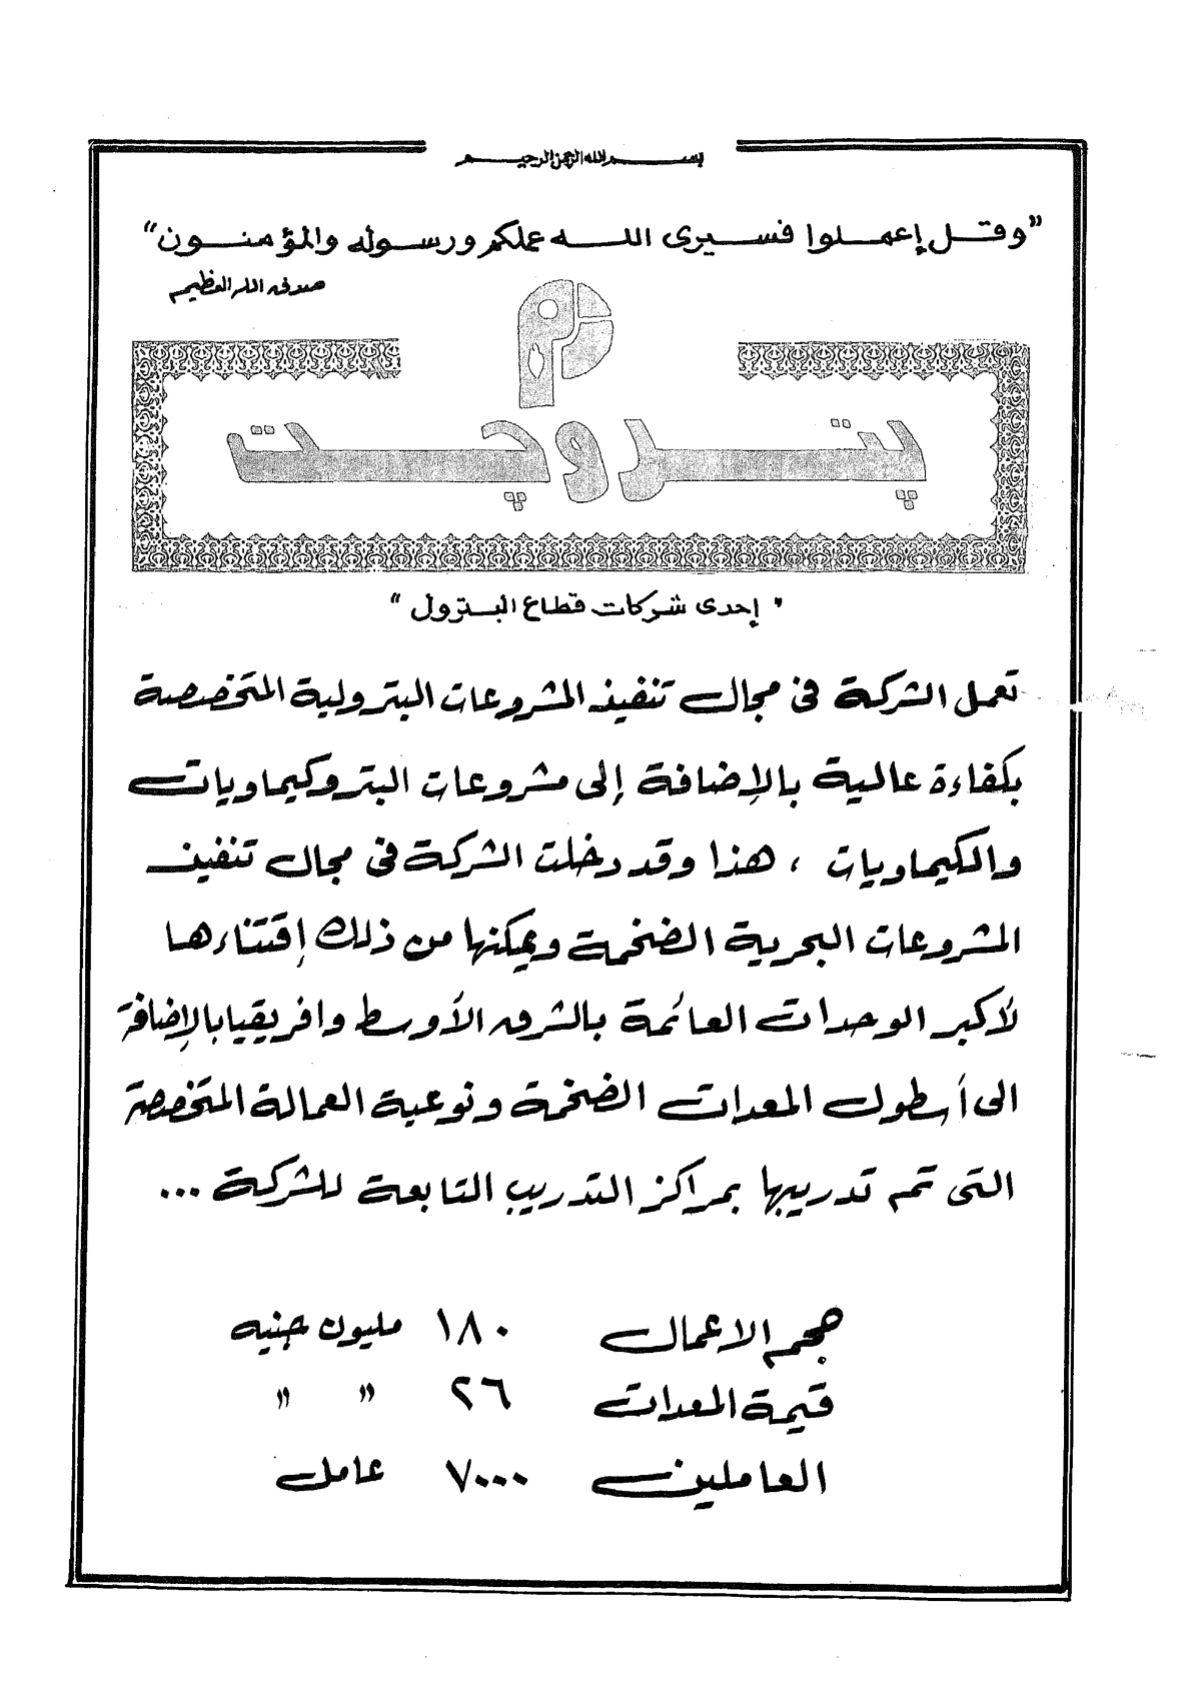 بسم الله الرحمن الرحيم
"وقل إعملوا فسيرى الله عملكم ورسوله والمؤمنون"
صدق الله العظيم
پتروچت
"إحدى شركات قطاع البترول"
تعمل الشركة فى مجال تنفيذ المشروعات البترولية المتخصصة
بكفاءة عالية بالإضافة إلى مشروعات البتروكيماويات
والكيماويات ، هذا وقد دخلت الشركة فى مجال تنفيذ
المشروعات البحرية الضخمة ويمكنها من ذلك إقتناءها
لأكبر الوحدات العائمة بالشرق الأوسط وافريقيا بالإضافة
الى أسطول المعدات الضخمة ونوعية العمالة المتخصصة
التى تم تدريبها بمراكز التدريب التابعة للشركة ...
حجم الاعمال ١٨٠ مليون جنيه
قيمة المعدات ٢٦ " "
العاملين ٧٠٠٠ عامل